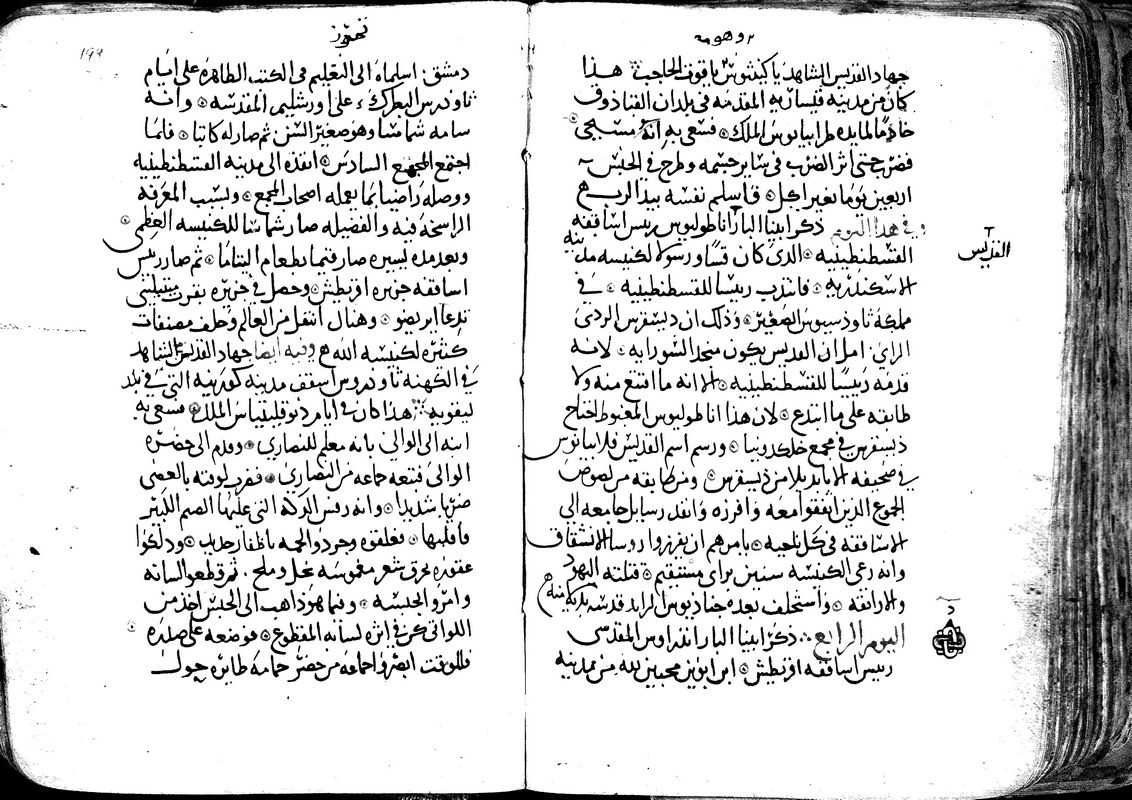 وهومه
جهاد القديس الشاهد ياكنثوس باقوف الحاجب هذا
كان من مدينه قيساريه المقدمه في بلدان القبادوق
خادمًا لمايده طرايانوس الملك فسعي به انه مسيحي
فضرب حتى اثر الضرب في ساير جسمه وطرح في الحبس
اربعين يومًا بغير اكل فاسلم نفسه بيد الرب
وفي هذا اليوم ذكر ابينا البار اناطوليوس ريس اساقفه
القسطنطينيه الذى كان قسًا ورسولا لكنيسه مدينه
الاسكندريه فانتدب رييسًا للقسطنطينيه في
مملكة تاودسيوس الصغير وذلك ان ديسقرس الردى
الراي امل ان القديس يكون منجد الشورايه لانه
قدمه رييسًا للقسطنطينيه الا انه ما اقتنع منه ولا
طابقه على ما ابتدع لان هذا اناطوليوس المغبوط اجتاح
ديسقرس في مجمع خلكدونيا ورسم اسم القديس فلابيانوس
في صحيفه الاباء بدلا من ديسقرس ومن طابقه من لصوص
الجموع الذين اتفقوا معه وافرزه وانفد رسايل جامعه الى
الاساقفه في كل ناحيه يامرهم ان يفرزوا روسا الانشقاق
وانه رعى الكنيسه سنين براى مستقيم قتلته اليهود
والاراتقه واستخلف بعده جناديوس
القديس
اليوم الرابع ذكر ابينا البار اندراوس المقدسي
رييس اساقفه اقريطش ابن ابوين محبين لله من مدينه
تموز
193
دمشق اسلماه الى التعليم في الكتب الطاهره على ايام
تاودرس البطرك على اورشليم المقدسه وانه
سامه شماسًا وهو صغير السن ثم صار له كاتبًا فلما
اجتمع المجمع السادس انفذه الى مدينه القسطنطينيه
ووصله راضيًا بما يعمله اصحاب المجمع وبسبب المعرفه
الراسخه فيه والفضيله صار شماسًا للكنيسه العظمى
وبعد مده يسيره صار قيمًا بطعام اليتاما ثم صار ريس
اساقفه جزيره اقريطش وحصل في جزيره بقرب ميتيليني
تدعا ابريسو وهناك انتقل من العالم وخلف مصنفات
كثيره لكنيسه الله وفيه ايضًا جهاد القديس الشاهد
في الكهنه تاودروس اسقف مدينه كورينيه التى في بلد
ليقويه هذا كان في ايام ديوقليتياس الملك فسعى به
ابنه الى الوالي بانه معلم للنصارى وقدم الى حضرة
الوالى فتبعه جماعه من النصارى فضرب لوقته بالعصى
ضربًا شديدًا وانه رفس الدكه التى عليها الصنم الكبير
فاقلبها فعلقوه وجردو الحمه باظفار حديد ودلكوا
عقوره بخرق شعر مغموسه بخل وملح ثم قطعوا لسانه
وامروا بحبسه وفيما هو ذاهب الى الحبس اخذ من
اللواتى كن في اثره لسانه المقطوع فوضعه على صدره
فللوقت ابصروا جماعه من حضر حمامه طايره حول